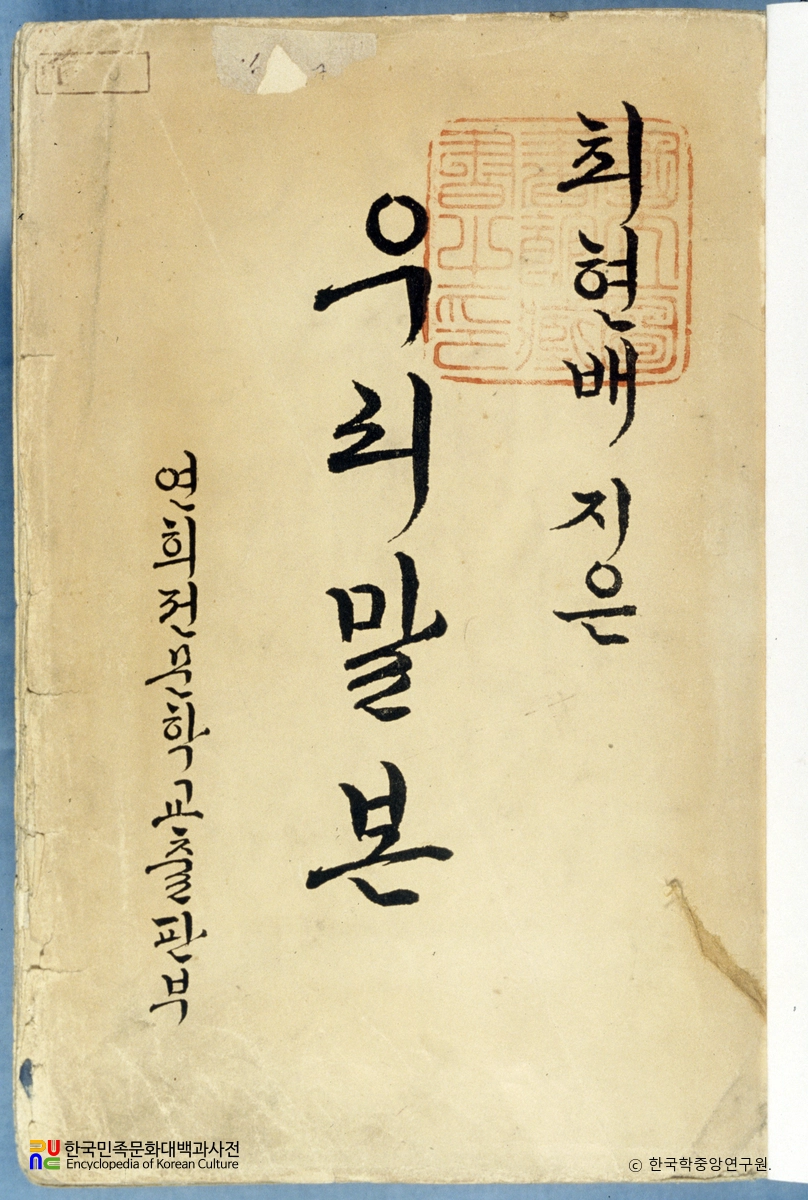 최현배 지은
우리말본
연희전문학교출판부
한국민족문화대백과사전
Encyclopedia of Korean Culture
ⓒ 한국학중앙연구원.